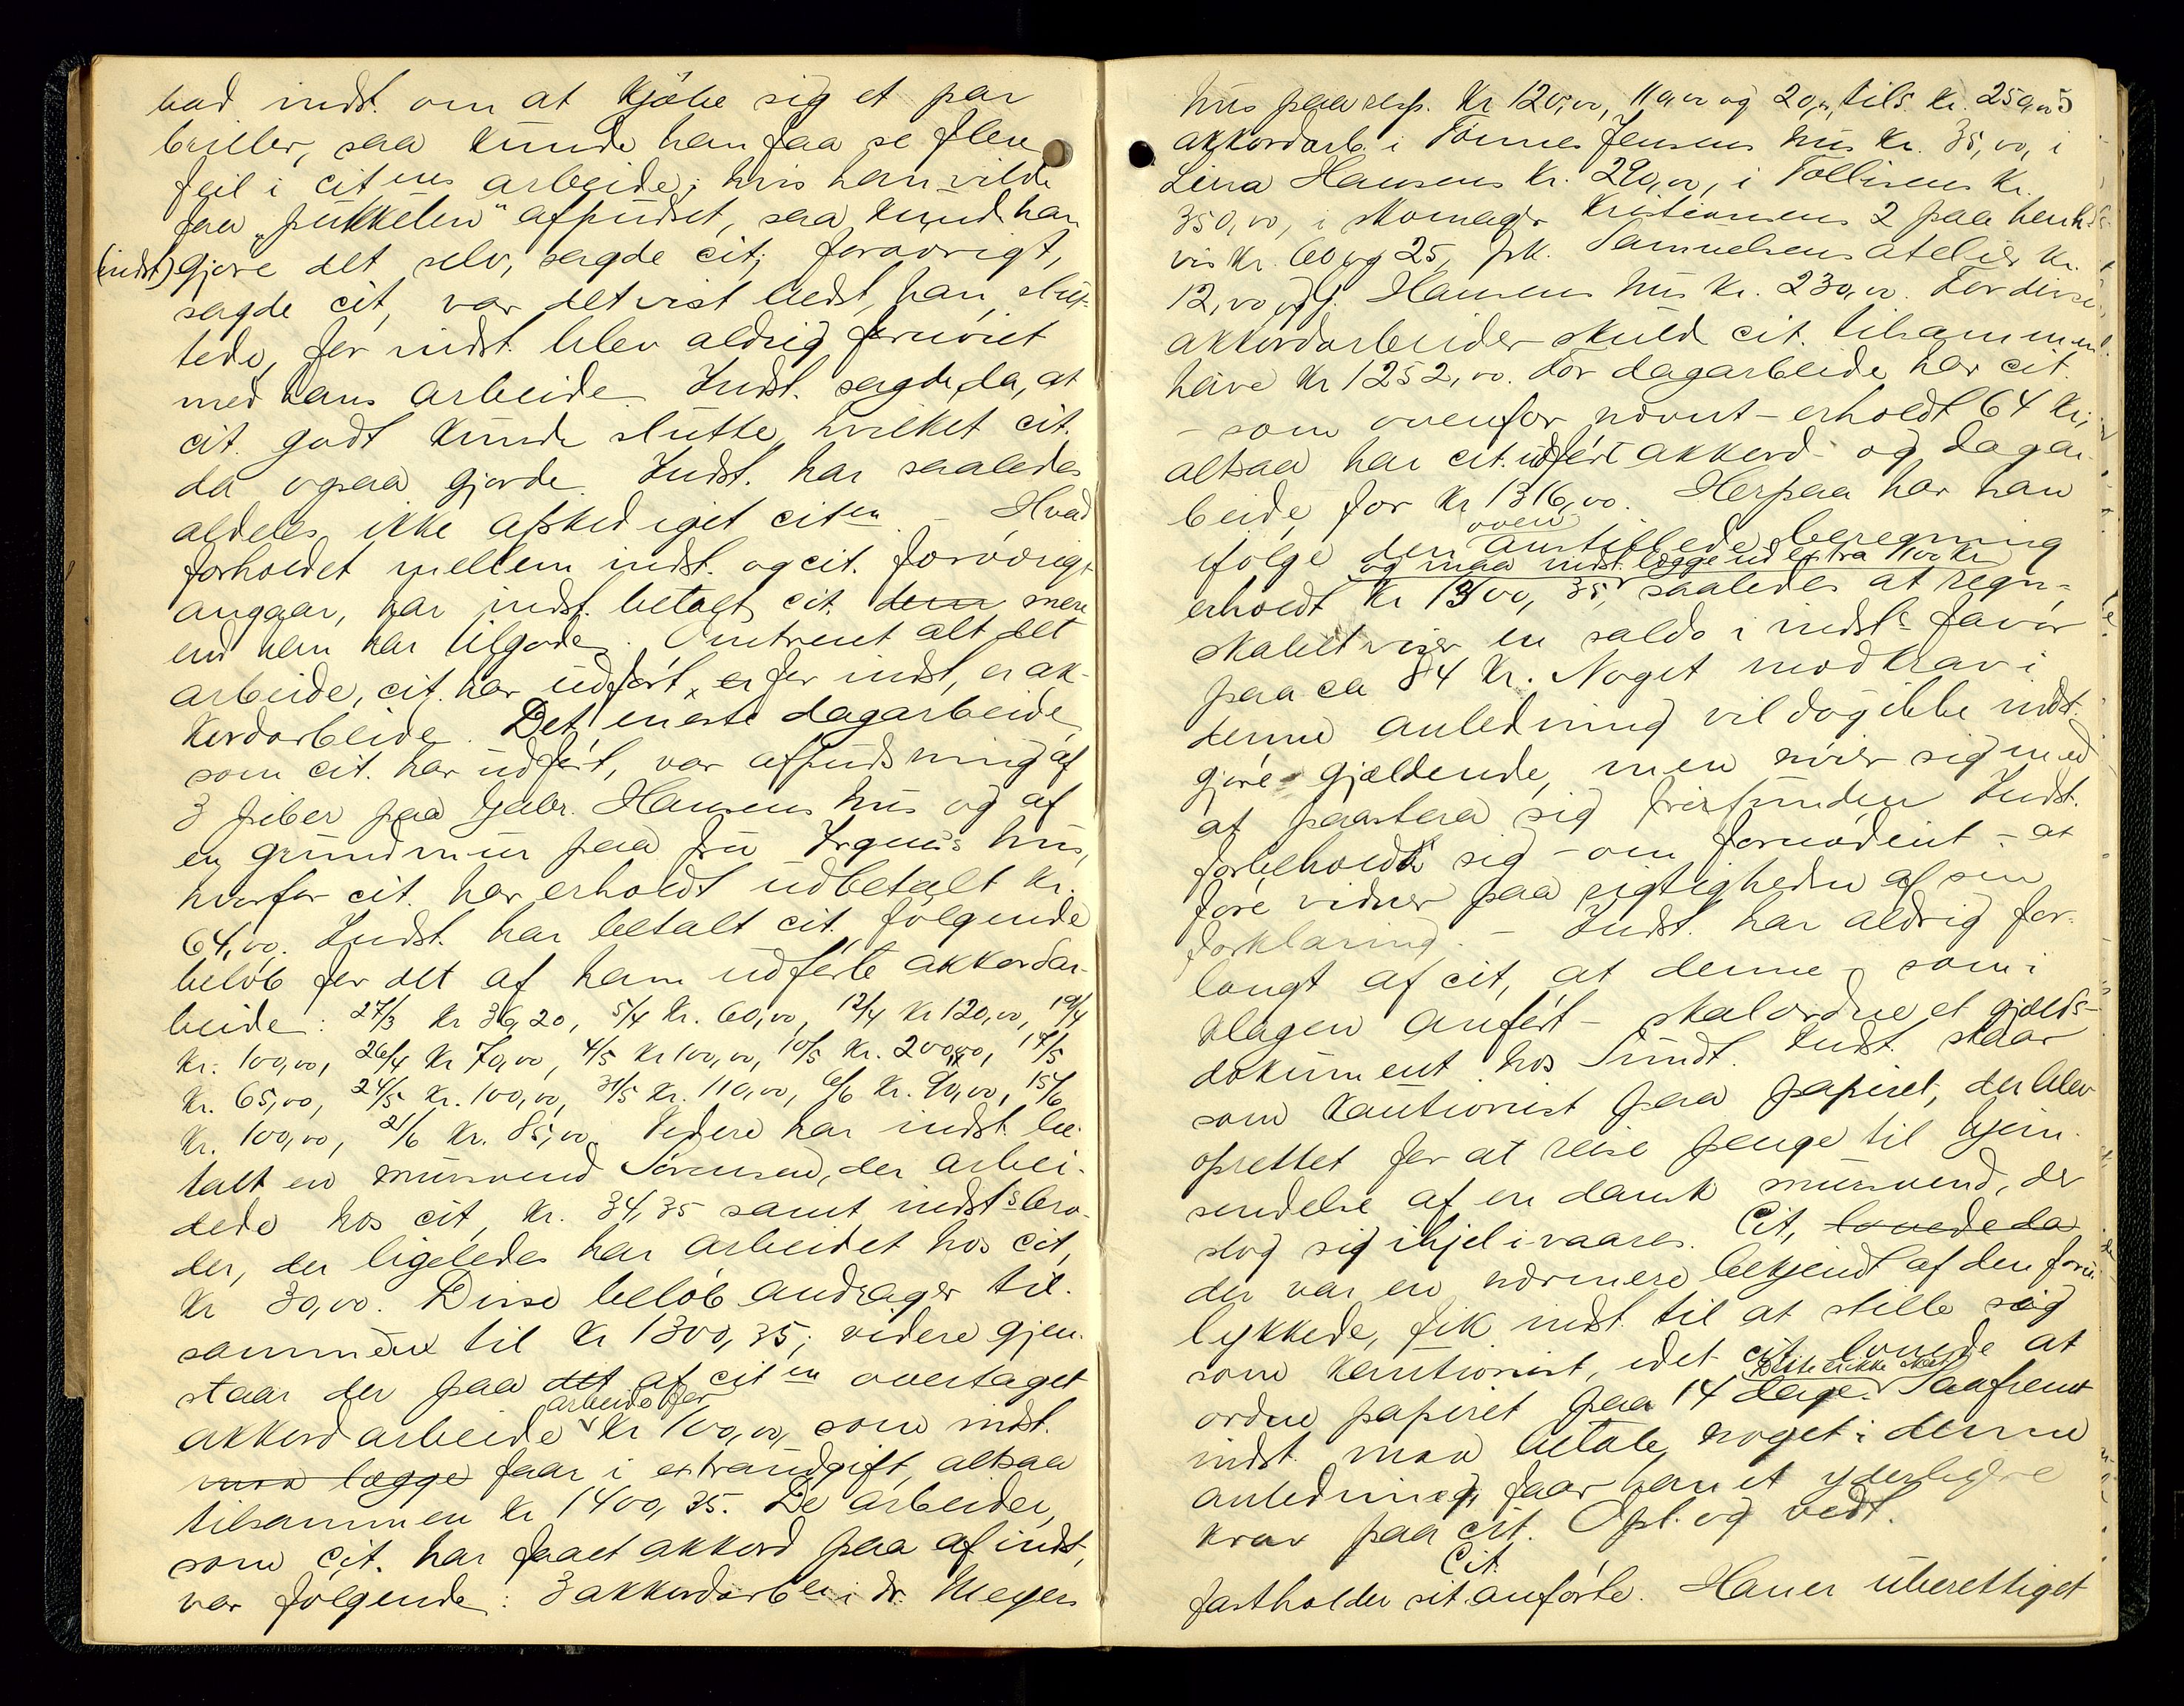 bad indst. om at kjøbe sig et par
briller, saa kunde han faa se flere
feil i citens arbeide; hvis han vilde
faa "pukkelen" afpudset, saa kund han
(indst) gjøre det selv, sagde cit; forøvrigt,
sagde cit, var det vist bedst, han slut-
tede, for indst. blev aldrig fornøiet
med hans arbeide. Indst. sagde da, at
cit. godt kunde slutte, hvilket cit.
da ogsaa gjorde. Indst. har saaledes
aldeles ikke afskediget citen. – Hvad
forholdet mellem indst. og cit. forøvrigt
angaar, har indst. betalt cit. dem mere
end han har tilgode. Omtrent alt det
arbeide, cit. har udført, er for indst, er ak-
kordarbeide. Det eneste dagarbeide,
som cit. har udført, var afpudsning af
3 piber paa Gabr. Hansens hus og af
en grundmur paa fru Irgens's hus,
hvorfor cit. har erholdt udbetalt kr.
64,00. Indst. har betalt cit. følgende
beløb for det af ham udførte akkordar-
beide: 27/3 kr 36,20, 5/4 kr. 60,00, 12/4 kr 120,00, 19/4
kr. 100,00, 26/4 kr 70,00, 4/5 kr 100,00, 10/5 kr. 200,00, 17/5
kr. 65,00, 24/5 kr. 100,00, 31/5 kr. 110,00, 6/6 kr. 90,00, 15/6
kr. 100,00, 21/6 kr. 85,00. Videre har indst. be-
talt en mursvend Sørensen, der arbei-
dede hos cit, kr. 34,35 samt indsts bro-
der, der ligeledes har arbeidet hos cit,
kr 30,00. Disse beløb andrager til-
sammen til kr 1300,35; videre gjen-
staar der paa det af citen overtaget
arbeide for
akkordarbeide kr 100,00, som indst.
maa lægge faar i extraudgift, altsaa
tilsammen kr 1400,35. De arbeider,
som cit. har faaet akkord paa af indst,
var følgende: 3 akkordarb. i dr. Meyers
hus paa resp. kr 120,00, 110,00 og 20,00, tils. kr. 250,00
akkordarb. i Tønnes Jensens hus kr. 35,00, i
Lina Hansens kr. 290,00, i Tollisens kr.
350,00, i skomager Kristiansens 2 paa henholds
vis kr. 60 og 25, frk. Samuelsens atelier kr.
12,00 og G. Hansens hus kr. 230,00. For disse
akkordarbeider skuld cit. tilsammen
have kr 1252,00. For dagarbeide har cit.
– som ovenfor nævnt – erholdt 64 kr;
altsaa har cit. udført akkord- og dagar-
beide for kr 1316,00. Herpaa har han
oven
ifølge den anstillede beregning
og maa indst. lægge ud extra 100 kr
erholdt kr 1300,35, saaledes at regn-
skabet viser en saldo i indsts favør
paa ca 84 kr. Noget modkrav i
denne anledning vil dog ikke indst.
gjøre gjældende, men nøier sig med
at paastaa sig frifunden. Indst.
forbeholdt sig – om fornødent – at
føre vidner paa rigtigheden af sin
forklaring. – Indst. har aldrig for-
langt af cit, at denne – som i
klagen anført – skal ordne et gjælds-
dokument hos Sundt. Indst. staar
som kautionist paa papiret, der blev
oprettet for at reise penge til hjem-
sendelse af en dansk mursvend, der
slog sig ihjel i vaares. Cit, lovede da
der var en nærmere bekjendt af den foru-
lykkede, fik indst. til at stille sig
som kautionist, idet cit. lovede at
Dette er ikke skeet
ordne papiret paa 14 dage. Saafremt
indst. maa betale noget i denne
anledning, faar han et yderligere
krav paa cit. Opl. og vedt.
Cit.
fastholder sit anførte. Han er uberettiget